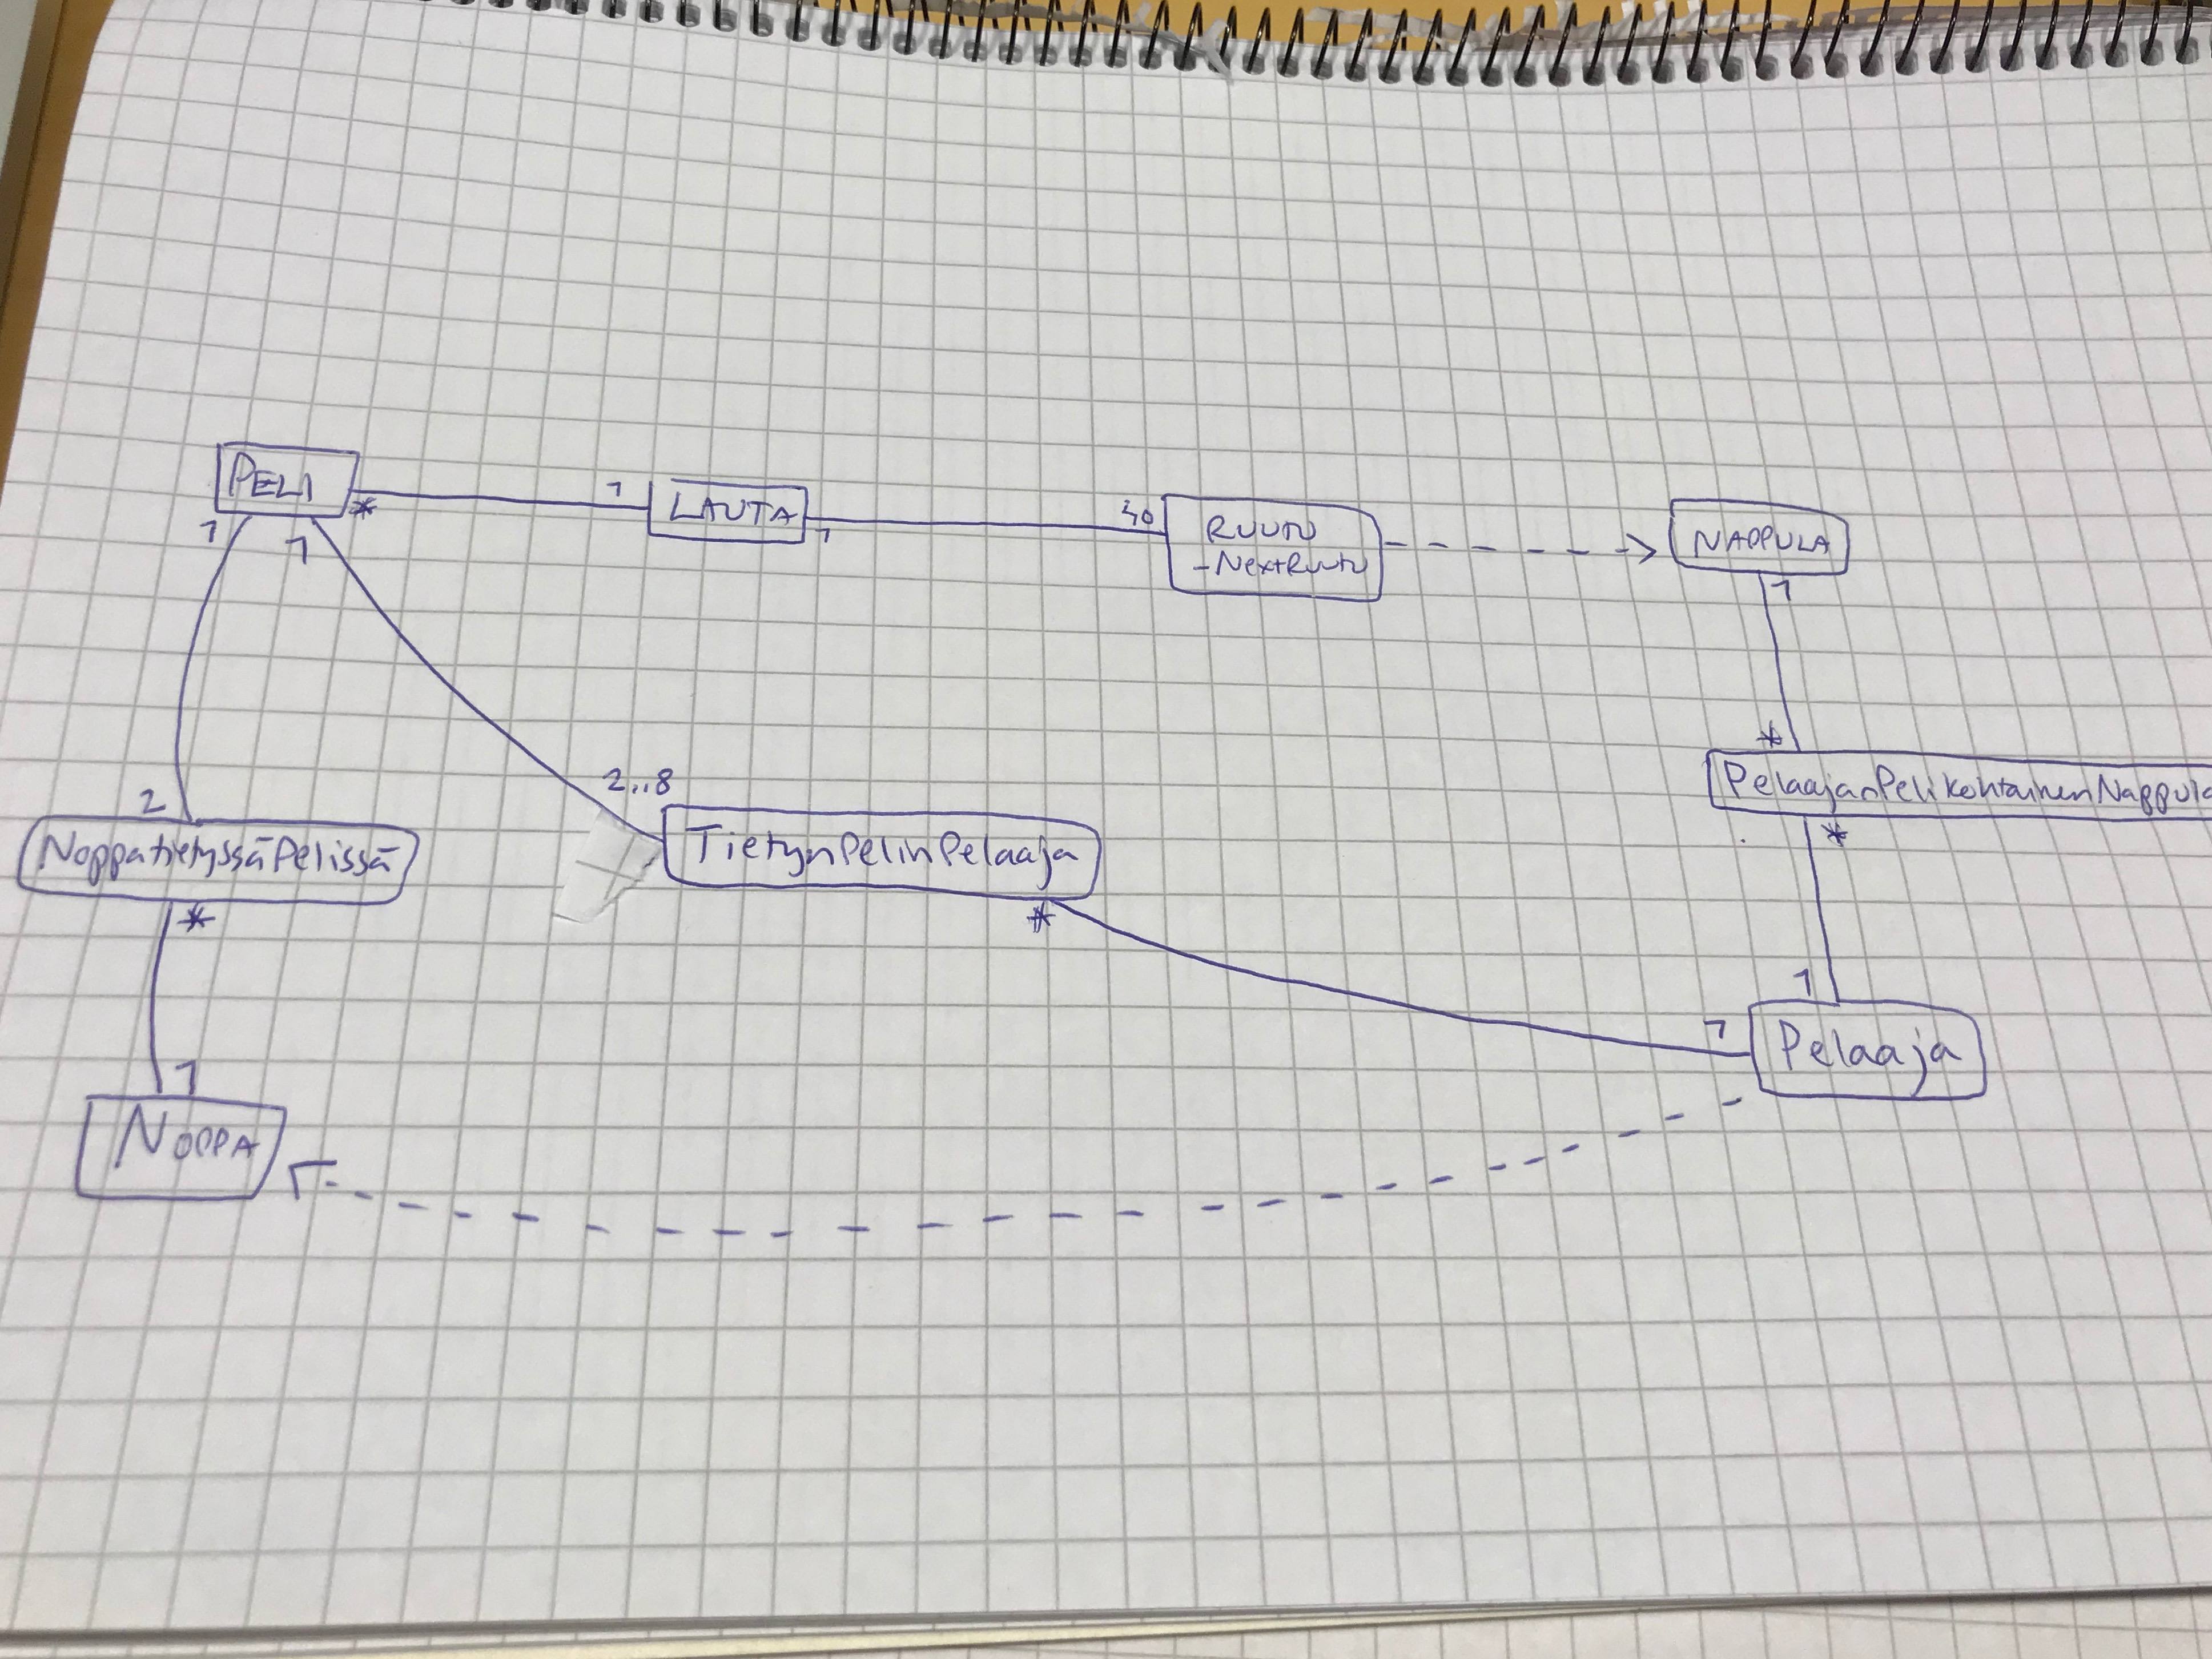 PELI
*
1
LAUTA
1
40
RUUTU
-NextRuutu
NAPPULA
1
1
1
*
PelaajanPelikohtainenNappula
*
2
NoppatietyssäPelissä
*
2..8
TietynPelinPelaaja
*
1
1
Pelaaja
1
NOPPA